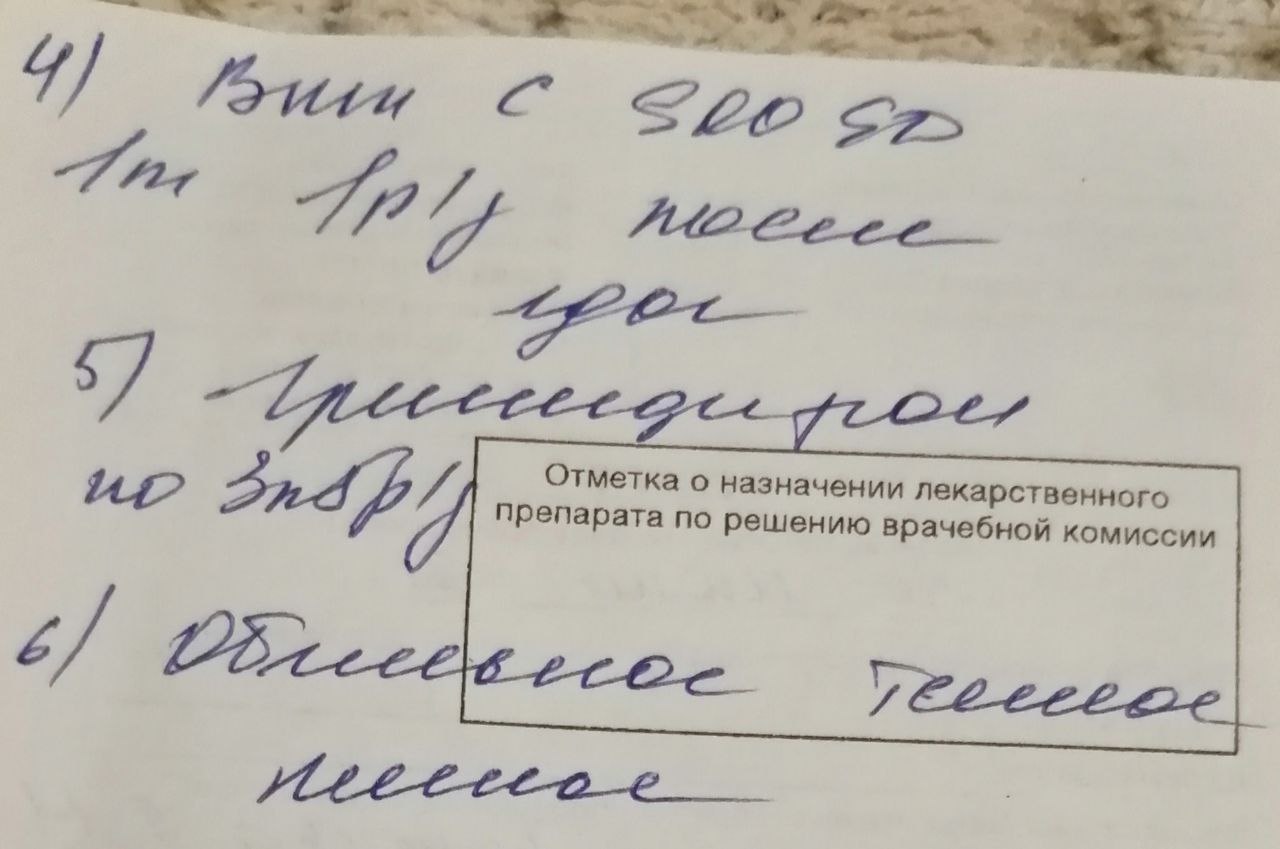 4) Вит С 500 ЕД
1т 1р/д после
еды
5) Гриппдирон
по 3т 5р/д
Отметка о назначении лекарственного
препарата по решению врачебной комиссии
6) Обильное теплое
питье